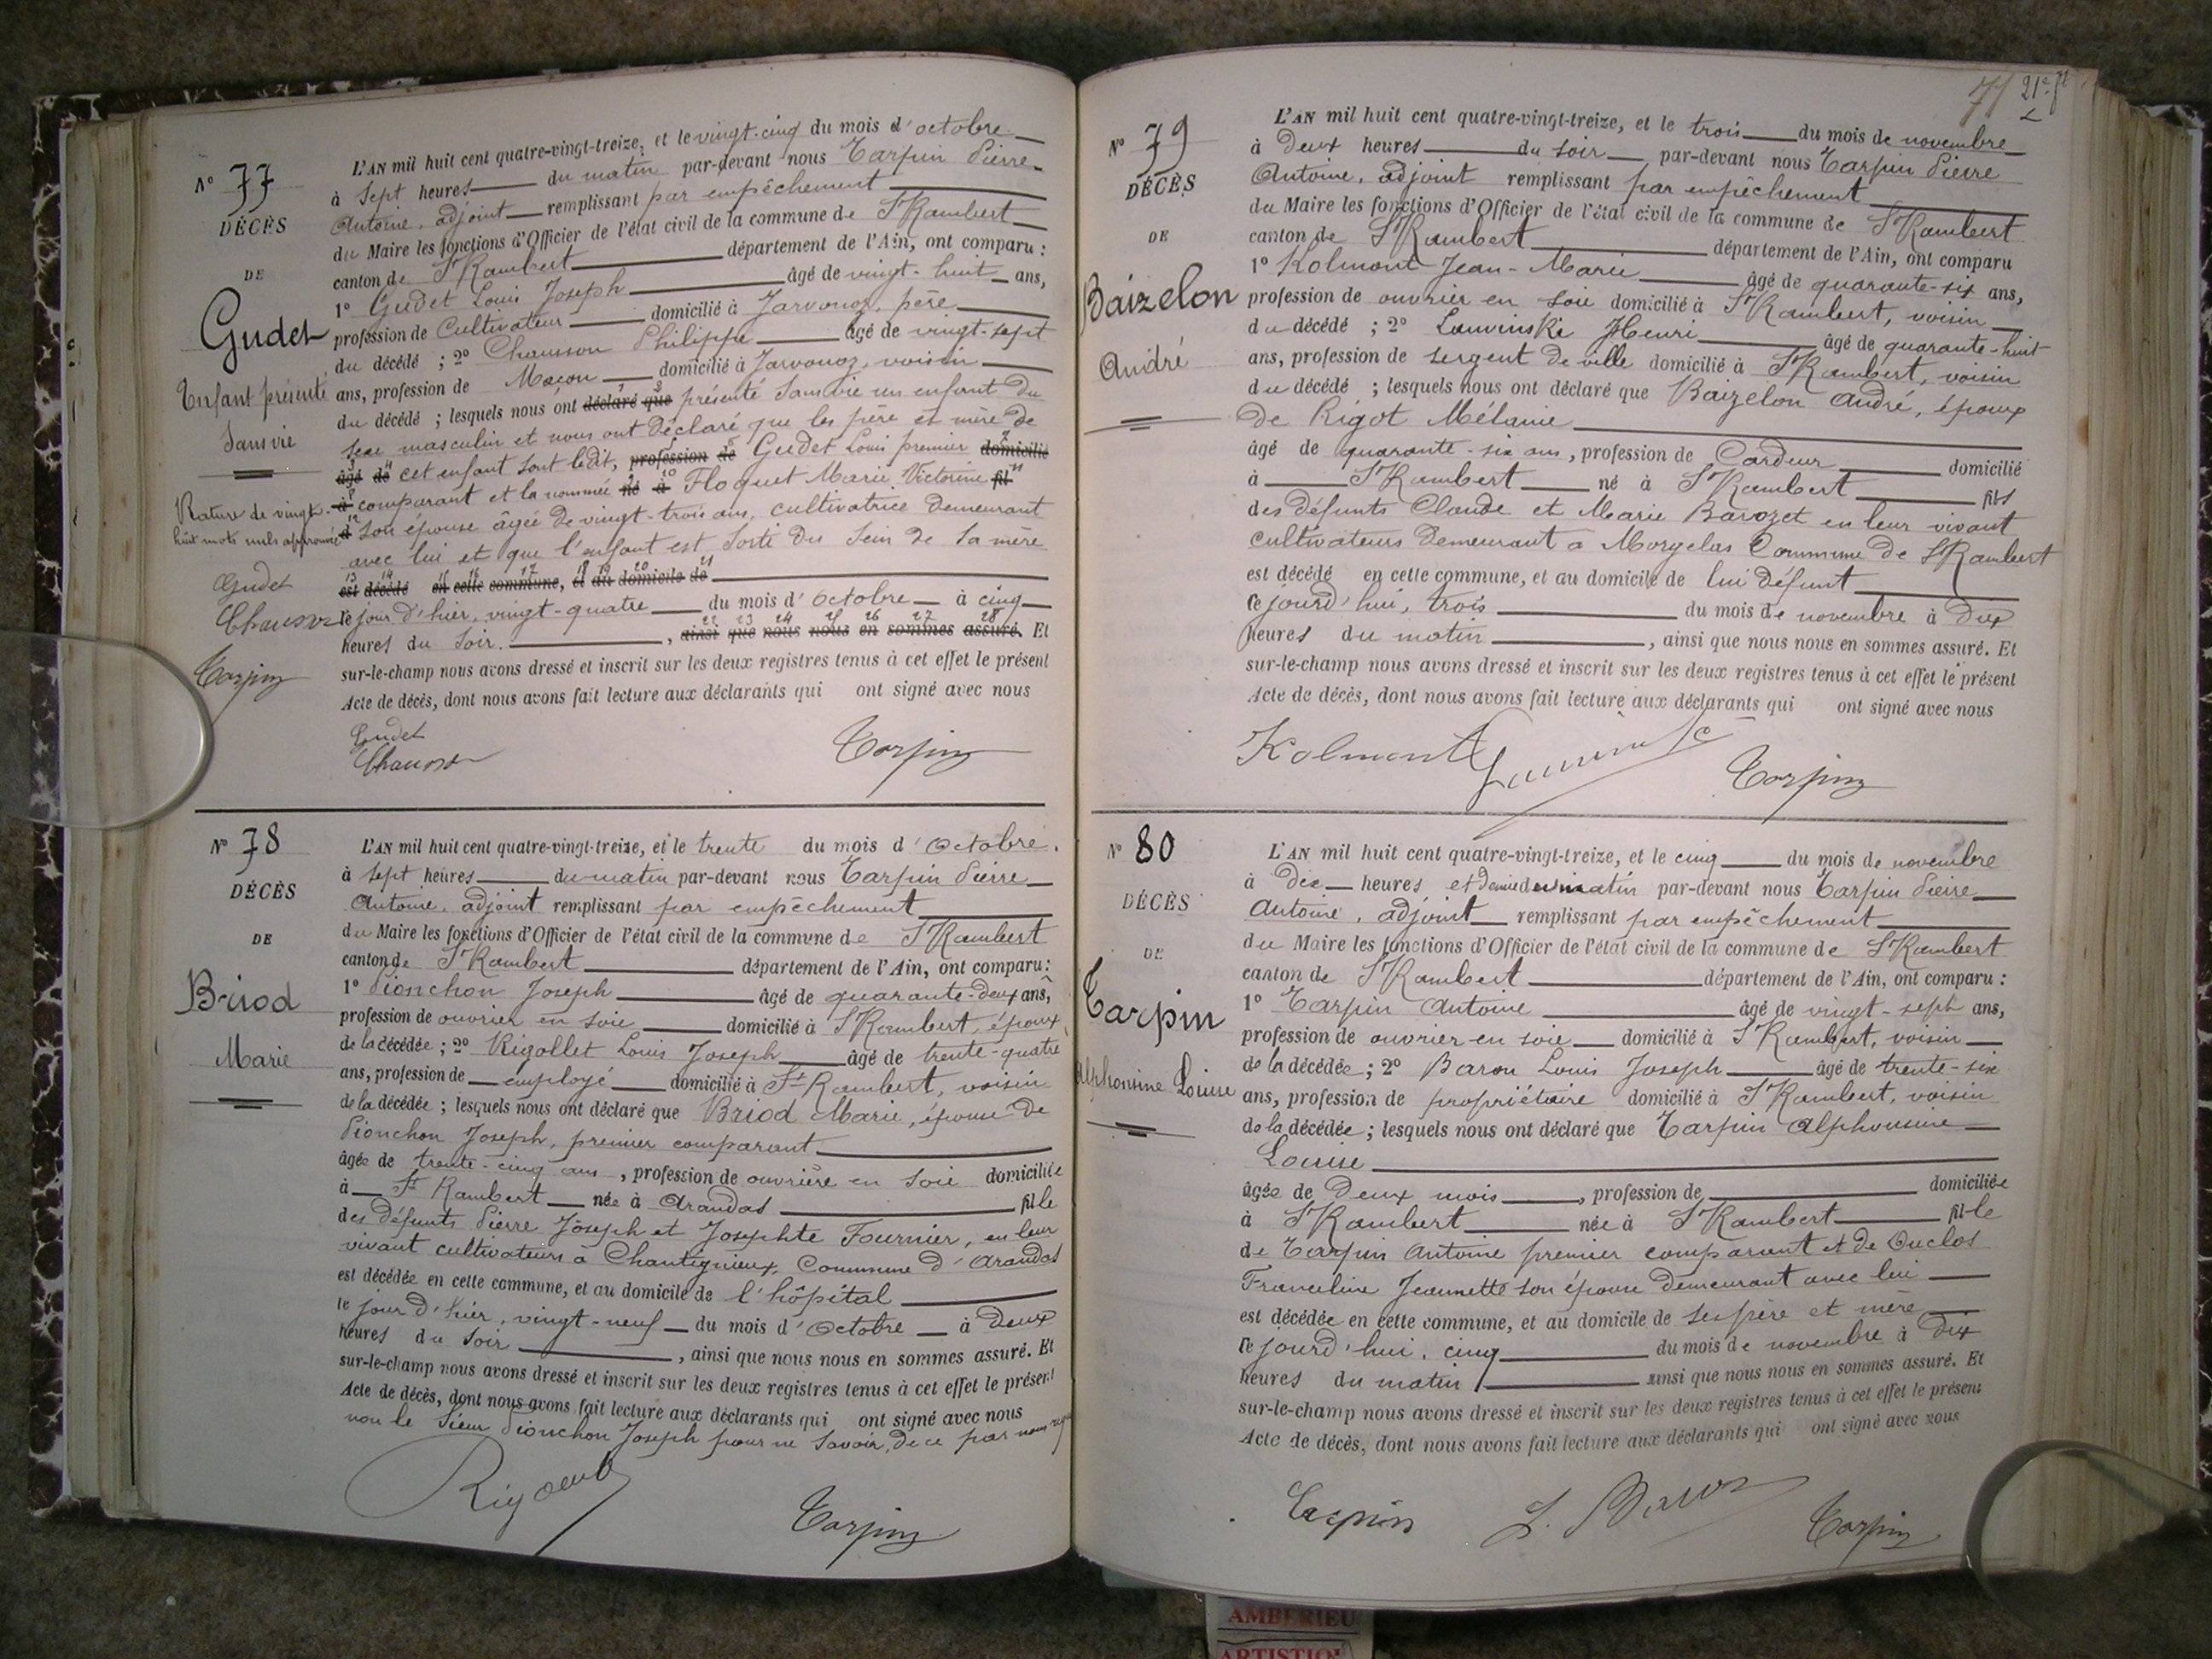 N° 77
DÉCÈS
DE
Gudet
Enfant présenté
Sans vie
Rature de vingt-
huit mots nuls approuvée
Gudet
Chausson
Tarpin
L'AN mil huit cent quatre-vingt-treize, et le vingt-cinq du mois d'octobre
à sept heures du matin par-devant nous Tarpin Pierre-
Antoine, adjoint remplissant par empêchement
du Maire les fonctions d'Officier de l'état civil de la commune de St Rambert
canton de St Rambert département de l'Ain, ont comparu :
1° Gudet Louis Joseph âgé de vingt-huit ans,
profession de Cultivateur domicilié à Javornoz, père
du décédé ; 2° Chausson Philippe âgé de vingt-sept
ans, profession de Maçon domicilié à Javornoz, voisin
du décédé ; lesquels nous ont déclaré que présenté Sans vie un enfant du
sexe masculin et nous ont déclaré que les père et mère de
âgé de cet enfant sont ledit, profession de Gudet Louis premier domicilié
à comparant et la nommée né à Floquet Marie Victorine fil
d son épouse âgée de vingt-trois ans, cultivatrice demeurant
avec lui et que l'enfant est sorti du Sein de sa mère
est décédé en cette commune, et au domicile de
le jour d'hier, vingt-quatre du mois d'Octobre à cinq
heures du Soir. , ainsi que nous nous en sommes assuré. Et
sur-le-champ nous avons dressé et inscrit sur les deux registres tenus à cet effet le présent
Acte de décès, dont nous avons fait lecture aux déclarants qui ont signé avec nous
Gudet
Chausson
Tarpin
N° 78
DÉCÈS
DE
Briod
Marie
L'AN mil huit cent quatre-vingt-treize, et le trente du mois d'Octobre.
à sept heures du matin par-devant nous Tarpin Pierre
Antoine, adjoint remplissant par empêchement
du Maire les fonctions d'Officier de l'état civil de la commune de St Rambert
canton de St Rambert département de l'Ain, ont comparu :
1° Pionchon Joseph âgé de quarante-deux ans,
profession de ouvrier en soie domicilié à St Rambert, époux
de la décédée ; 2° Rigollet Louis Joseph âgé de trente-quatre
ans, profession de employé domicilié à St Rambert, voisin
de la décédée ; lesquels nous ont déclaré que Briod Marie, épouse de
Pionchon Joseph, premier comparant
âgée de trente-cinq ans, profession de ouvrière en soie domiciliée
à St Rambert née à Arandas fille
des défunts Pierre Joseph et Josephte Fournier, en leur
vivant cultivateurs à Chantignieux, Commune d'Arandas
est décédée en cette commune, et au domicile de l'hôpital
le jour d'hier, vingt-neuf du mois d'Octobre à deux
heures du Soir , ainsi que nous nous en sommes assuré. Et
sur-le-champ nous avons dressé et inscrit sur les deux registres tenus à cet effet le présent
Acte de décès, dont nous avons fait lecture aux déclarants qui ont signé avec nous
non le Sieur Pionchon Joseph pour ne Savoir, de ce par nous
Tarpin
71 21e ft
N° 79
DÉCÈS
DE
Baizelon
André
L'AN mil huit cent quatre-vingt-treize, et le trois du mois de novembre
à Deux heures du soir par-devant nous Tarpin Pierre
Antoine, adjoint remplissant par empêchement
du Maire les fonctions d'Officier de l'état civil de la commune de St Rambert
canton de St Rambert département de l'Ain, ont comparu
1° Kolmont Jean-Marie âgé de quarante-six ans,
profession de ouvrier en soie domicilié à St Rambert, voisin
du décédé ; 2° Louvinski Henri âgé de quarante-huit
ans, profession de sergent de ville domicilié à St Rambert, voisin
du décédé ; lesquels nous ont déclaré que Baizelon André, époux
de Rigot Mélanie
âgé de quarante-six ans, profession de Cardeur domicilié
à St Rambert né à St Rambert fils
des défunts Claude et Marie Barozet en leur vivant
cultivateurs demeurant à Morgelas Commune de St Rambert
est décédé en cette commune, et au domicile de lui défunt
ce jourd'hui, trois du mois de novembre à Dix
heures du matin , ainsi que nous nous en sommes assuré. Et
sur-le-champ nous avons dressé et inscrit sur les deux registres tenus à cet effet le présent
Acte de décès, dont nous avons fait lecture aux déclarants qui ont signé avec nous
Kolmont
Tarpin
N° 80
DÉCÈS
DE
Tarpin
Alphonsine Louise
L'AN mil huit cent quatre-vingt-treize, et le cinq du mois de novembre
à dix heures et demie du matin par-devant nous Tarpin Pierre
Antoine, adjoint remplissant par empêchement
du Maire les fonctions d'Officier de l'état civil de la commune de St Rambert
canton de St Rambert département de l'Ain, ont comparu :
1° Tarpin Antoine âgé de vingt-sept ans,
profession de ouvrier en soie domicilié à St Rambert, voisin
de la décédée ; 2° Baron Louis Joseph âgé de trente-six
ans, profession de propriétaire domicilié à St Rambert, voisin
de la décédée ; lesquels nous ont déclaré que Tarpin Alphonsine
Louise
âgée de Deux mois , profession de domiciliée
à St Rambert née à St Rambert fille
de Tarpin Antoine premier comparant et de Duclos
Franceline Jeannette son épouse demeurant avec lui
est décédée en cette commune, et au domicile de ses père et mère
ce jourd'hui, cinq du mois de novembre à dix
heures du matin ainsi que nous nous en sommes assuré. Et
sur-le-champ nous avons dressé et inscrit sur les deux registres tenus à cet effet le présent
Acte de décès, dont nous avons fait lecture aux déclarants qui ont signé avec nous
Tarpin
L. Baron
Tarpin
AMBERIEU
ARTISTIQ